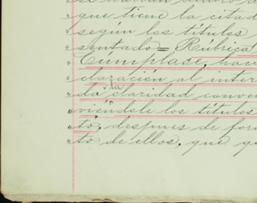 que tiene la citad
según los títulos
sentado = Rúbrica
Cúmplase, hac
claración al inter
da claridad conve
viéndole los títulos
to, despues de for
to de ellos, que q